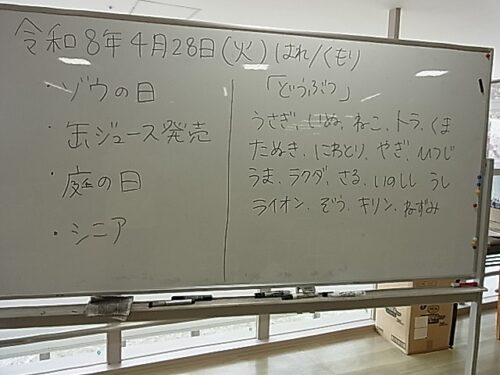 令和8年4月28日(火) はれ/くもり
・ゾウの日
・缶ジュース発売
・庭の日
・シニア
「どうぶつ」
うさぎ、いぬ、ねこ、トラ、くま
たぬき、にわとり、やぎ、ひつじ
うま、ラクダ、さる、いのしし うし
ライオン、ぞう、キリン、ねずみ